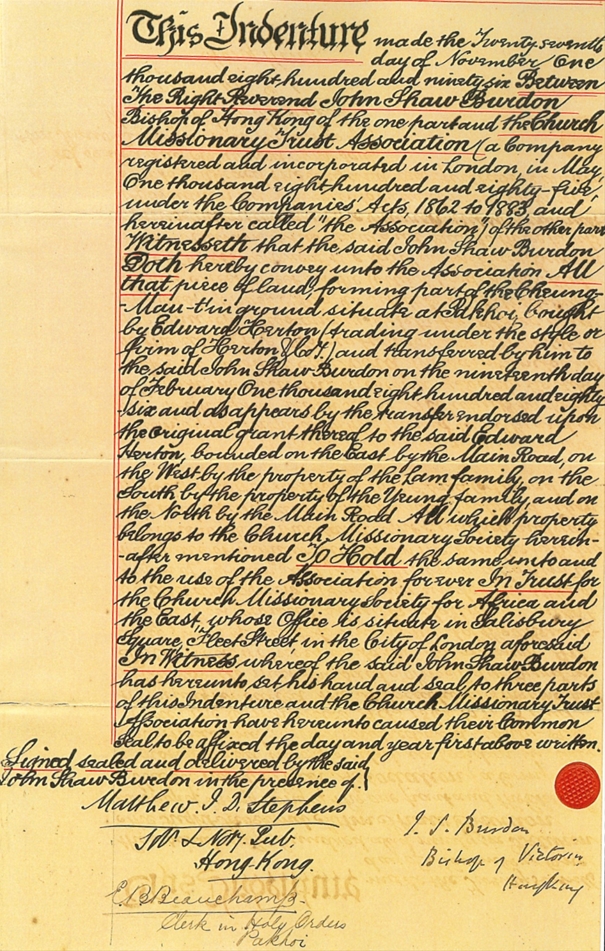 This Indenture made the Twenty seventh
day of November One
thousand eight hundred and ninety six Between
The Right Reverend John Shaw Burdon
Bishop of Hong Kong of the one part and the Church
Missionary Trust Association (a Company
registered and incorporated in London, in May,
One thousand eight hundred and eighty-five
under the Companies' Acts, 1862 to 1883, and
hereinafter called "the Association") of the other part
Witnesseth that the said John Shaw Burdon
Doth hereby convey unto the Association All
that piece of land, forming part of the Cheung-
-Mau-t'in ground situate at Pakhoi, bought
by Edward Herton (trading under the style or
firm of Herton & Co.) and transferred by him to
the said John Shaw Burdon on the nineteenth day
of February One thousand eight hundred and eighty
-six and as appears by the transfer endorsed upon
the original grant thereof to the said Edward
Herton, bounded on the East by the Main Road, on
the West by the property of the Lam family, on the
South by the property of the Yeung family, and on
the North by the Main Road All which property
belongs to the Church Missionary Society herein-
-after mentioned To Hold the same unto and
to the use of the Association for ever In Trust for
the Church Missionary Society for Africa and
the East, whose Office is situate in Salisbury
Square, Fleet Street in the City of London aforesaid
In Witness whereof the said John Shaw Burdon
has hereunto set his hand and seal to three parts
of this Indenture and the Church Missionary Trust
Association have hereunto caused their Common
Seal to be affixed the day and year first above written.
Signed sealed and delivered by the said
John Shaw Burdon in the presence of
Matthew J. D. Stephens
Sol. & Noty. Pub.
Hong Kong.
J. S. Burdon
Bishop of Victoria
Hongkong
E. B. Beauchamp.
Clerk in Holy Orders
Pakhoi